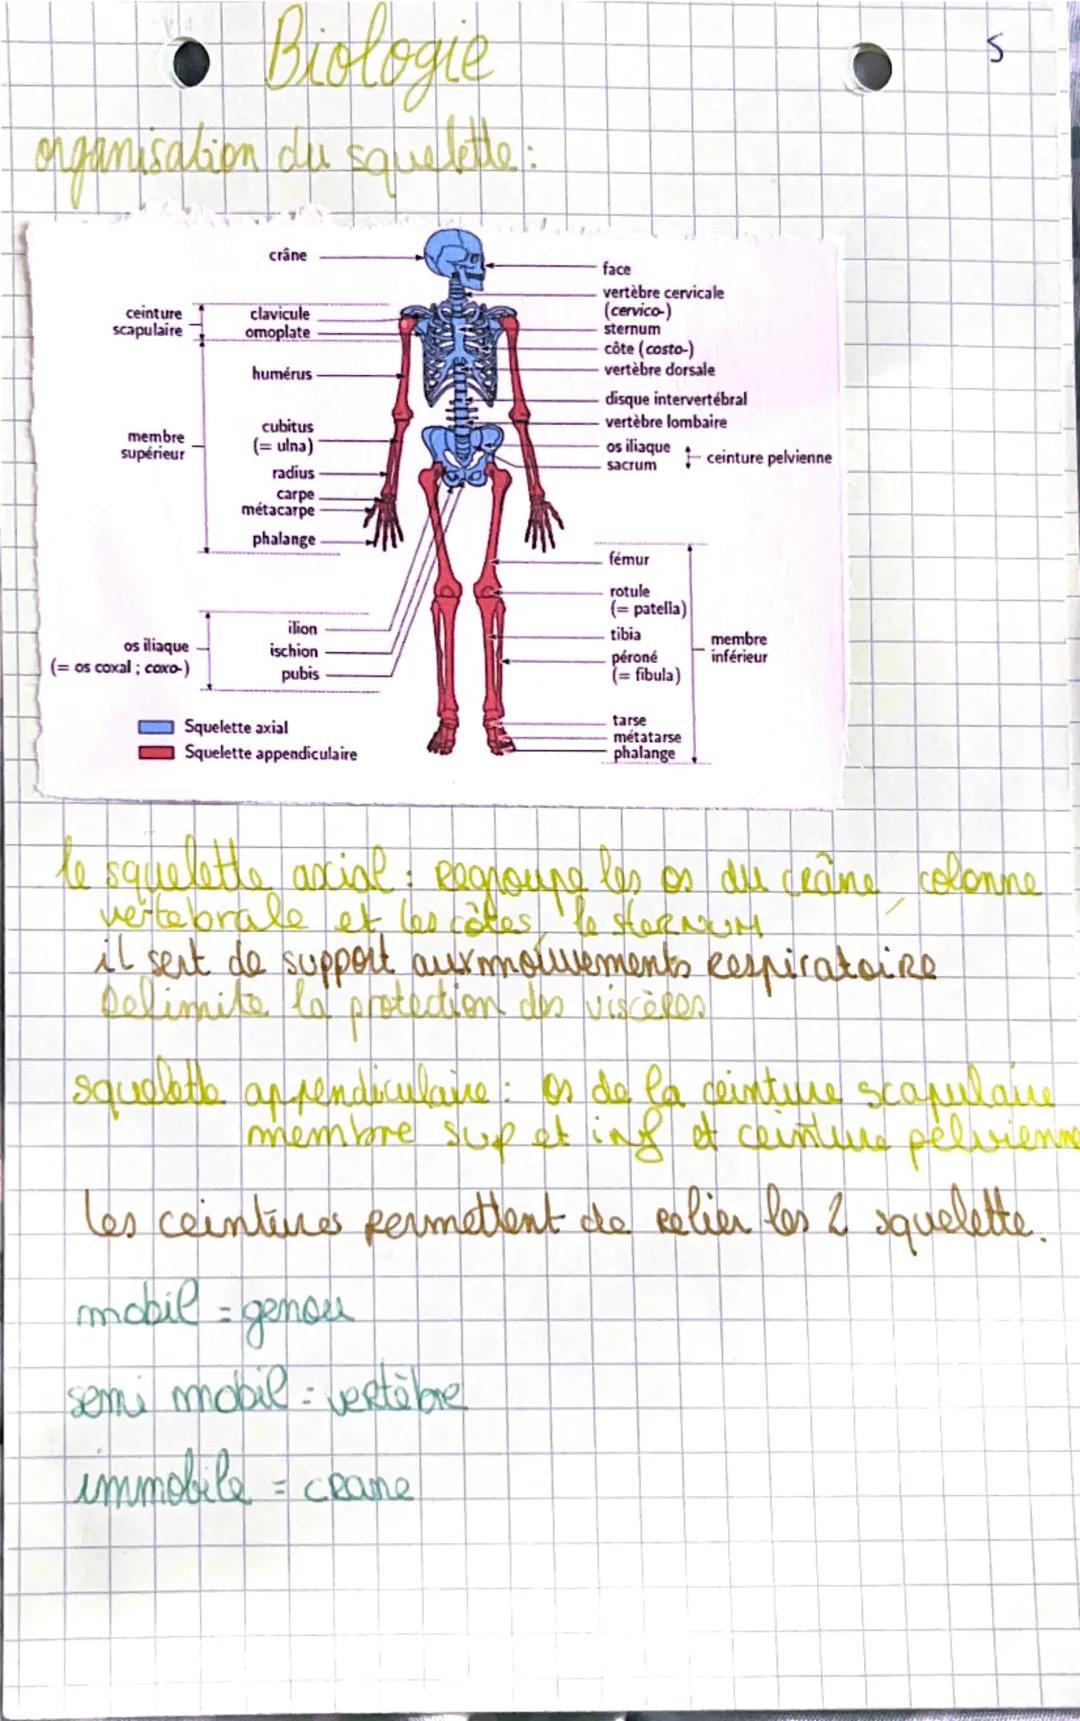 Biologie
5
organisation du squelette :
crâne
ceinture
scapulaire
clavicule
omoplate
humérus
membre
supérieur
cubitus
(= ulna)
radius
carpe
métacarpe
phalange
os iliaque
(= os coxal ; coxo-)
ilion
ischion
pubis
face
vertèbre cervicale
(cervico-)
sternum
côte (costo-)
vertèbre dorsale
disque intervertébral
vertèbre lombaire
os iliaque
sacrum
ceinture pelvienne
fémur
rotule
(= patella)
tibia
péroné
(= fibula)
membre
inférieur
tarse
métatarse
phalange
Squelette axial
Squelette appendiculaire
le squelette axial : Regroupe les os du crâne, colonne
vertebrale et les côtes, le sterNUM
il sert de support aux mouvements respiratoire
Delimite la protection des viscères
squelette appendiculaire : os de la ceinture scapulaire
membre sup et inf et ceinture pelvienne
les ceintures permettent de relier les 2 squelette.
mobil = genou
semi mobil = vertèbre
immobile = crane